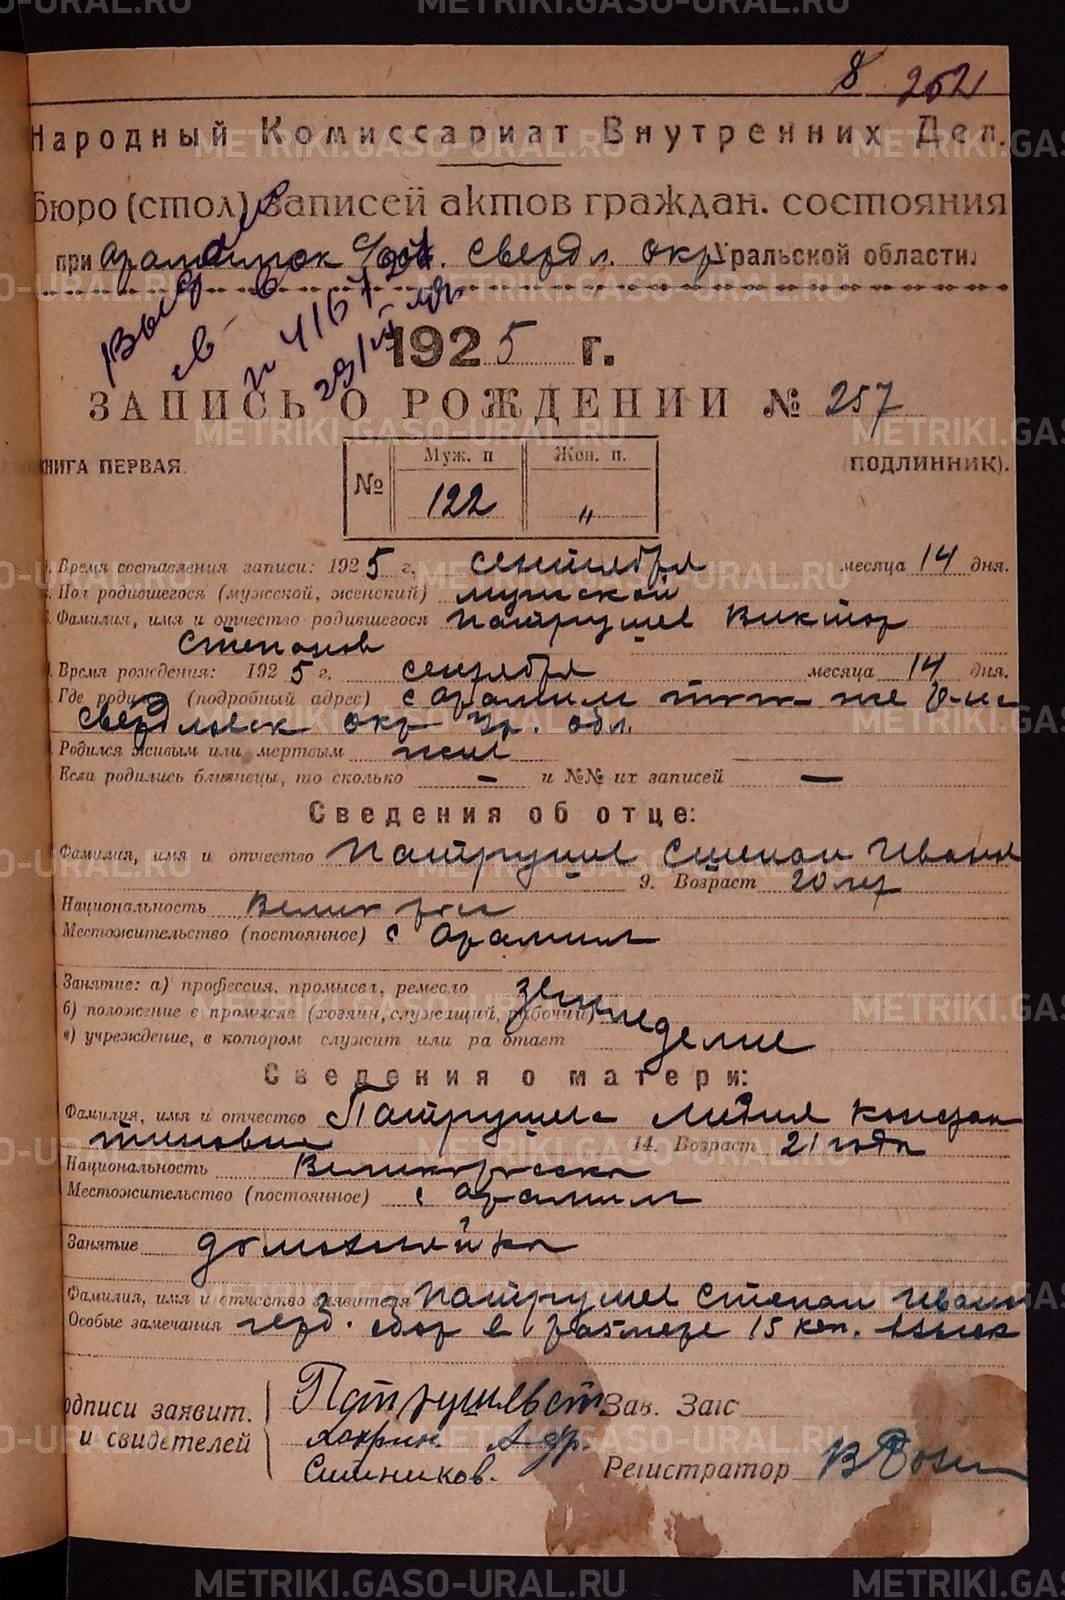 8 252
Народный Комиссариат Внутренних Дел.
бюро (стол) записей актов граждан. состояния
при Арамильск с/сов. Свердл. окр Уральской области.
1925 г.
ЗАПИСЬ О РОЖДЕНИИ № 257
КНИГА ПЕРВАЯ. ПОДЛИННИК).
№ Муж. п Жен. п.
122 "
Время составления записи: 1925 г. сентября месяца 14 дня.
Пол родившегося (мужской, женский) мужской
Фамилия, имя и отчество родившегося Патрушев Виктор
Степанов
Время рождения: 1925 г. сентября месяца 14 дня.
Где родился (подробный адрес) с Арамил того же р-на
Свердловск окр Ур. обл.
Родился живым или мертвым жив
Если родились близнецы, то сколько — и №№ их записей —
Сведения об отце:
Фамилия, имя и отчество Патрушев Степан Иванов
9. Возраст 20 лет
Национальность Великоросс
Местожительство (постоянное) с Арамил
Занятие: а) профессия, промысел, ремесло земледелие
б) положение в промысле (хозяин, служащий, рабочий)
в) учреждение, в котором служит или работает
Сведения о матери:
Фамилия, имя и отчество Патрушева Лидия Констан
тиновна 14. Возраст 21 года
Национальность Великоросска
Местожительство (постоянное) с Арамил
Занятие домохозяйка
Фамилия, имя и отчество заявителя Патрушев Степан Иванов
Особые замечания герб. сбор в размере 15 коп. взыск
Подписи заявит. Зав. Загс
и свидетелей
Регистратор
METRIKI.GASO-URAL.RU